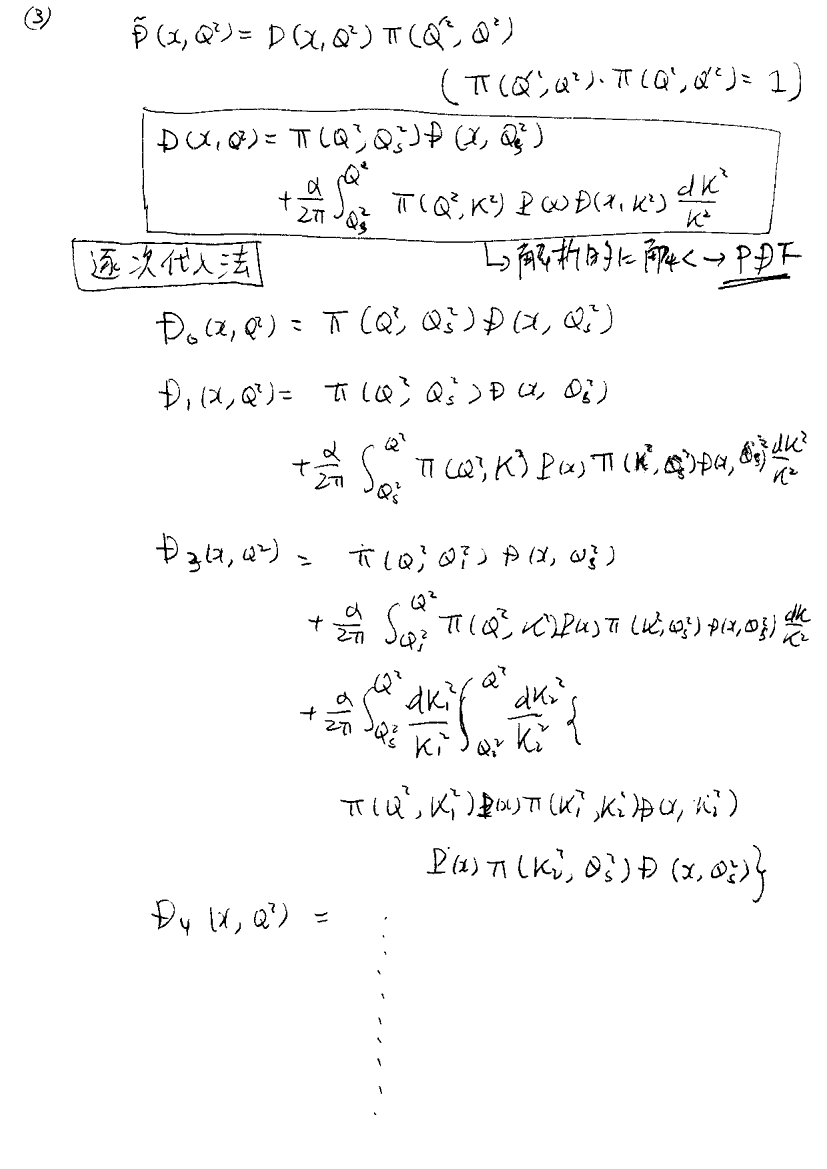 (3)
D̃(x, Q²) = D(x, Q²) π(Q'², Q²)
( π(Q'², Q²)・π(Q², Q'²) = 1 )
D(x, Q²) = π(Q², Qs²) D(x, Qs²)
+ α/2π ∫_{Qs²}^{Q²} π(Q², K²) P(x) D(x, K²) dK²/K²
逐次代入法
↳ 解析的に解く → PDF
D₀(x, Q²) = π(Q², Qs²) D(x, Qs²)
D₁(x, Q²) = π(Q², Qs²) D(x, Qs²)
+ α/2π ∫_{Qs²}^{Q²} π(Q², K²) P(x) π(K², Qs²) D(x, Qs²) dK²/K²
D₃(x, Q²) = π(Q², Qs²) D(x, Qs²)
+ α/2π ∫_{Qs²}^{Q²} π(Q², K²) P(x) π(K², Qs²) D(x, Qs²) dK/K²
+ α/2π ∫_{Qs²}^{Q²} dK₁²/K₁² ∫_{Qs²}^{Q²} dK₂²/K₂² {
π(Q², K₁²) P(x) π(K₁², K₂²) D(x, K₁²)
P(x) π(K₂², Qs²) D(x, Qs²) }
D₄(x, Q²) =